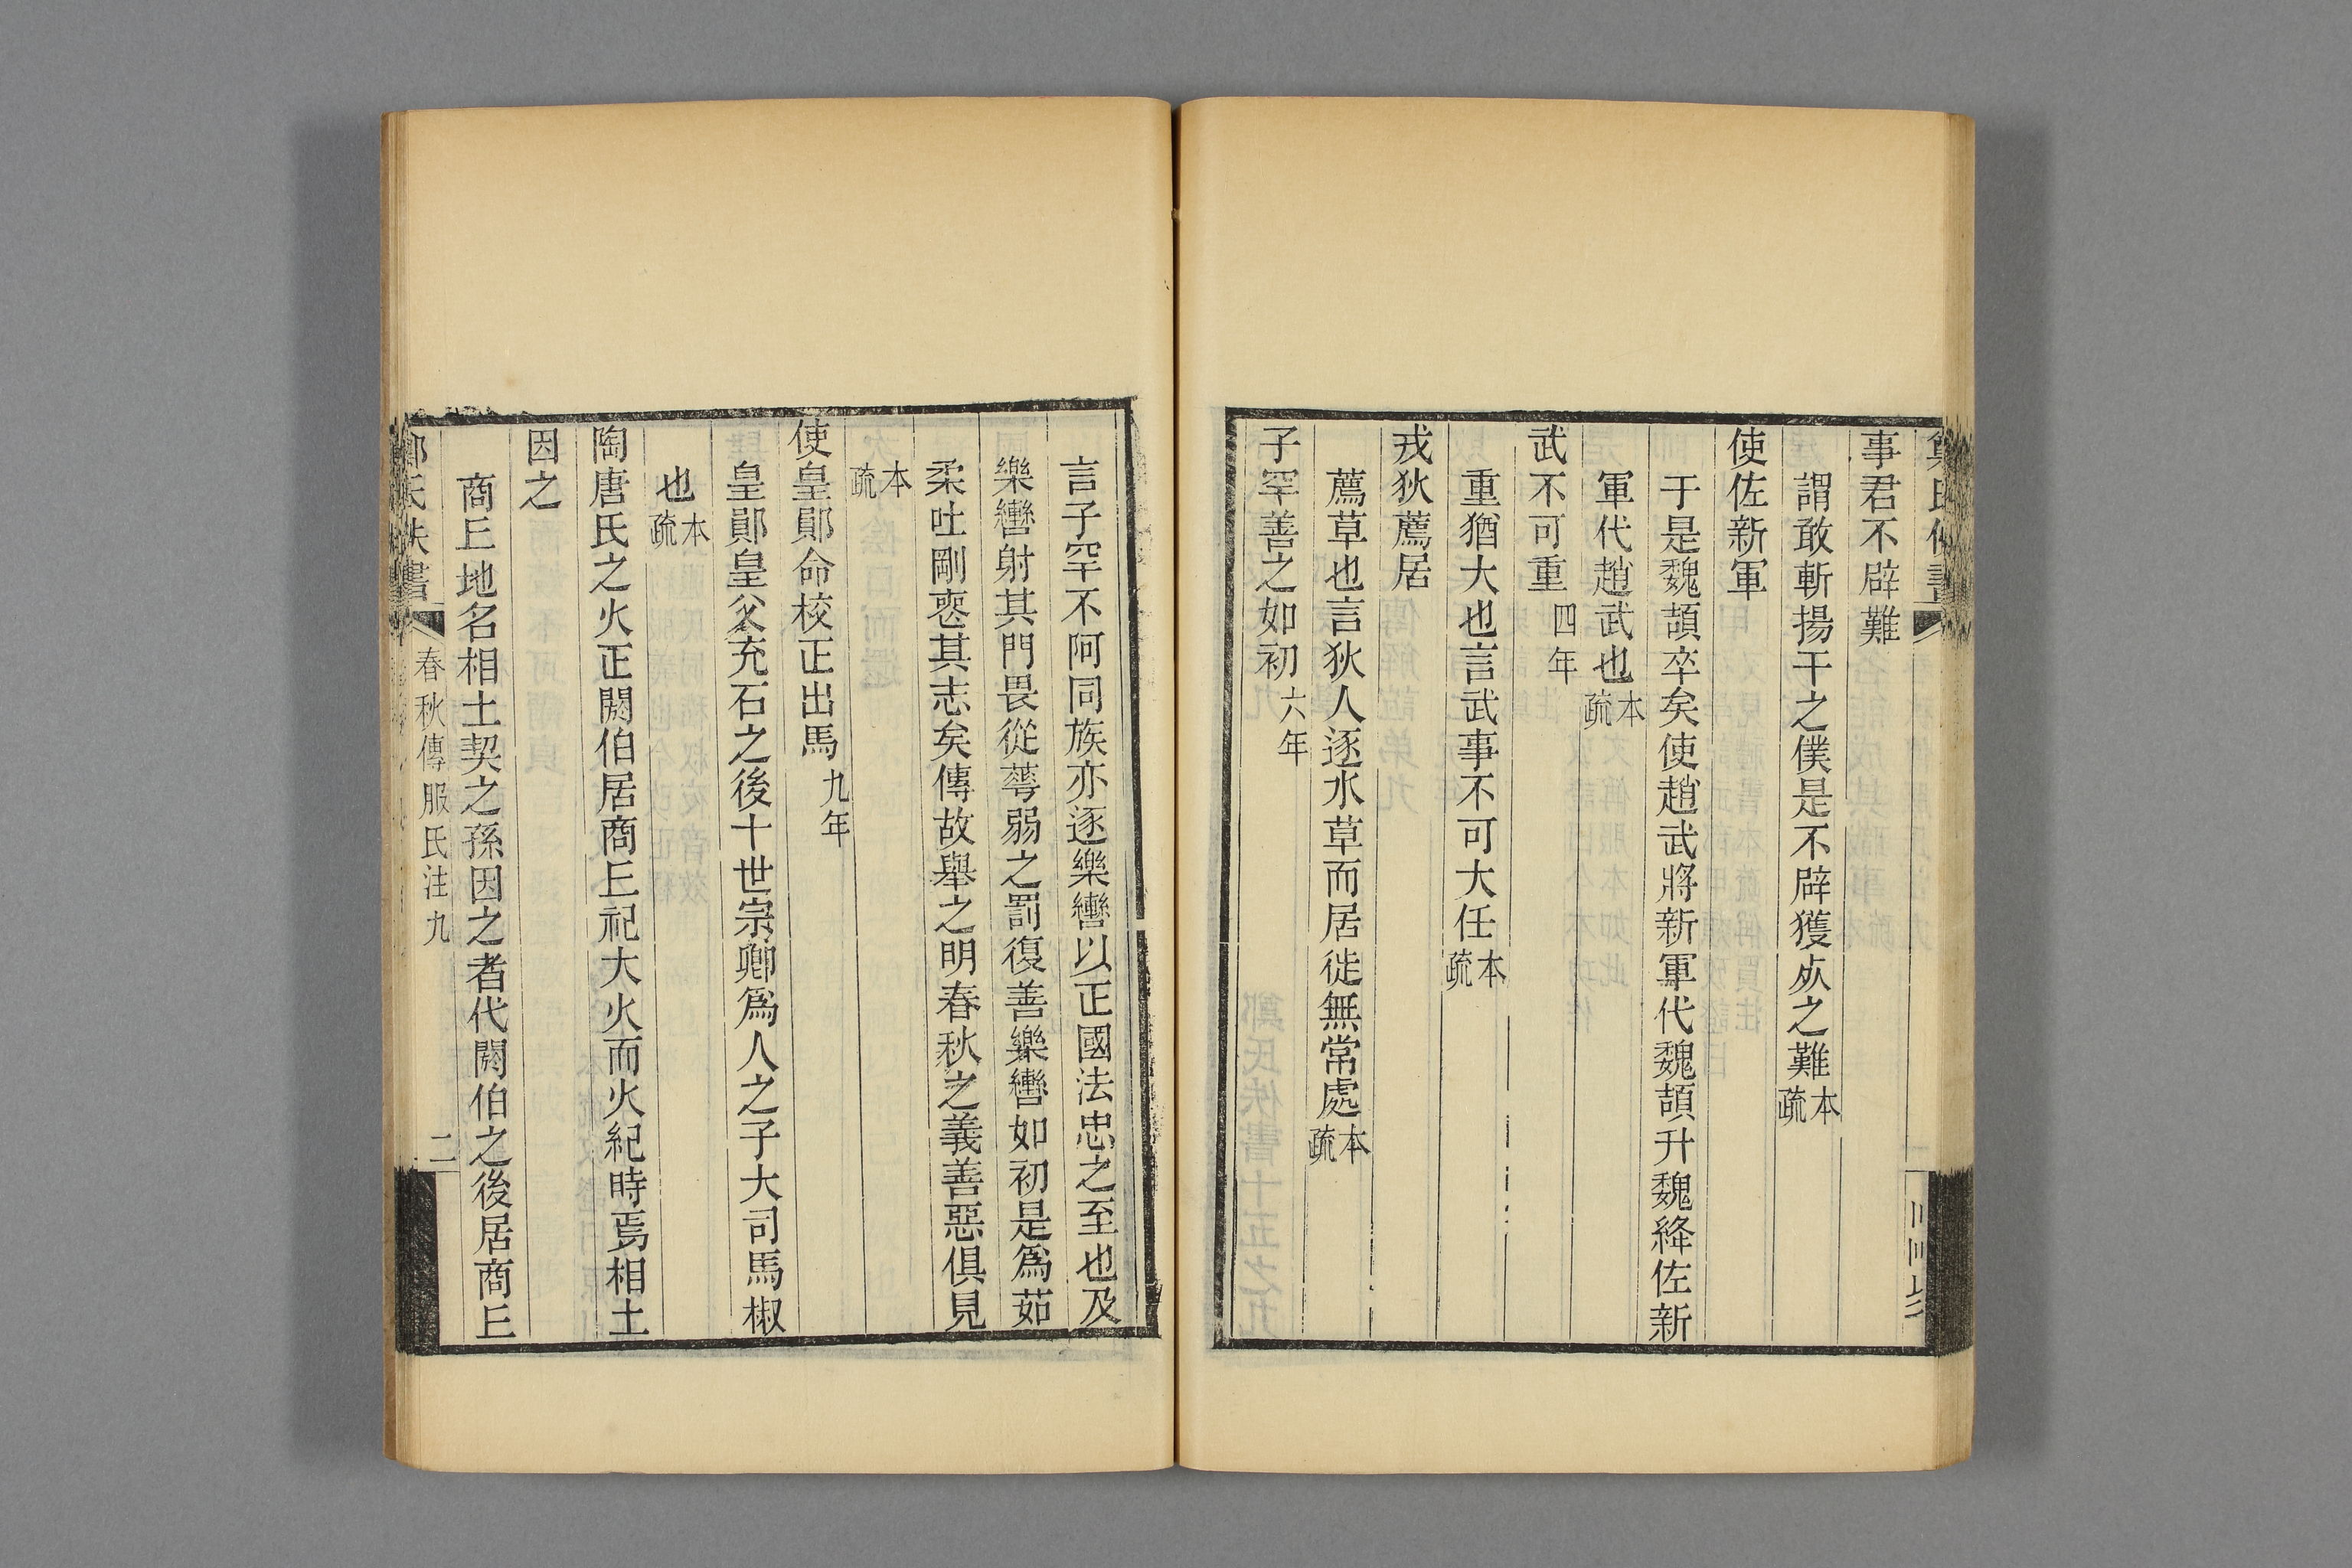 事君不辟難
謂敢斬揚干之僕是不辟獲𣦸之難本疏
使佐新軍
于是魏頡卒矣使趙武將新軍代魏頡升魏絳佐新
軍代趙武也本疏
武不可重四年
重猶大也言武事不可大任本疏
戎狄薦居
薦草也言狄人逐水草而居徙無常處本疏
子罕善之如初六年
言子罕不阿同族亦逐樂轡以正國法忠之至也及
樂轡射其門畏從華弱之罰復善樂轡如初是爲茹
柔吐剛喪其志矣傳故舉之明春秋之義善惡俱見
本疏
使皇鄖命校正出馬九年
皇鄖皇父充石之後十世宗卿爲人之子大司馬椒
也本疏
陶唐氏之火正閼伯居商丠祀大火而火紀時焉相土
因之
商丠地名相土契之孫因之者代閼伯之後居商丠
春秋傳服氏注九
二